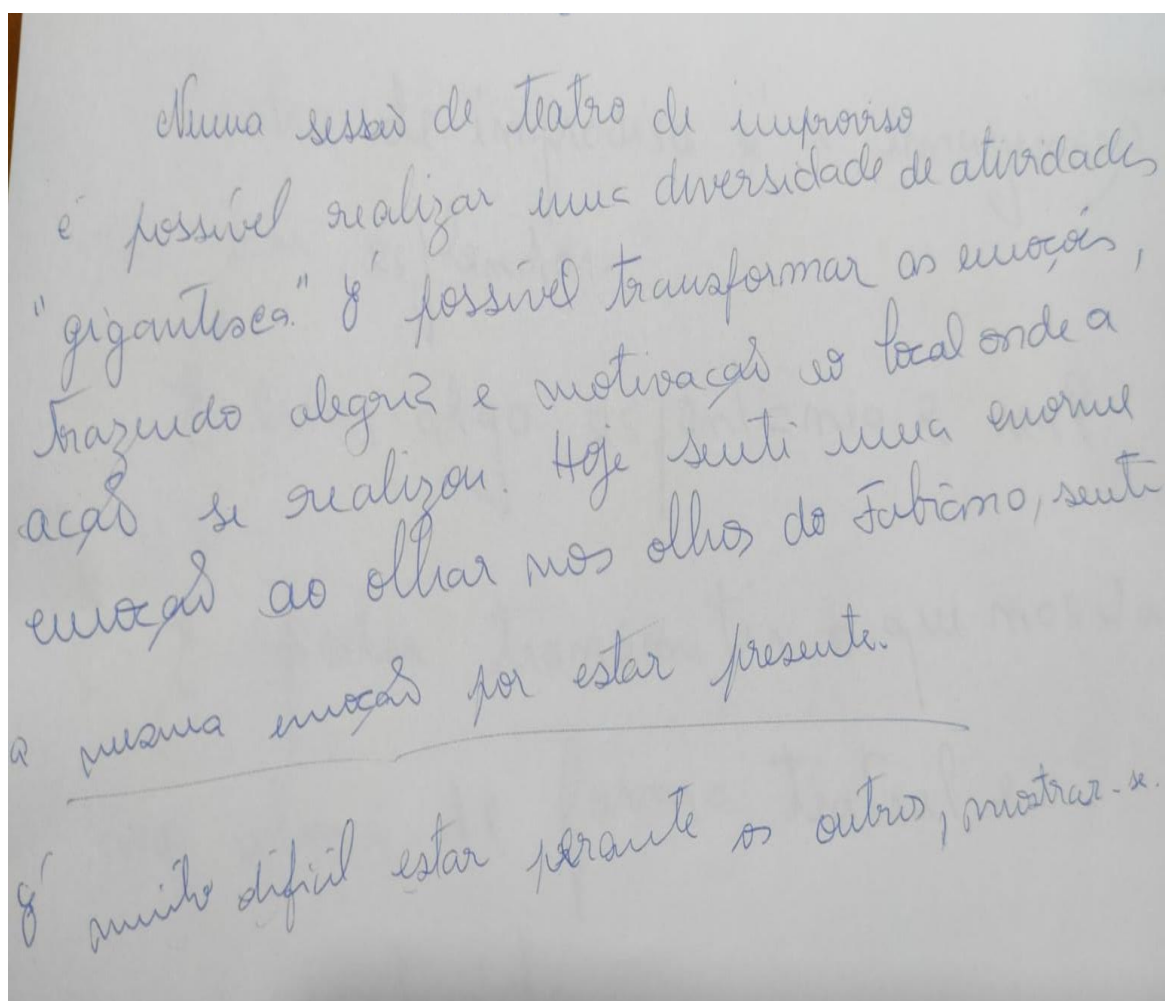 Numa sessão de teatro de improviso
é possível realizar uma diversidade de atividades
"gigantesca." É possível transformar as emoções,
trazendo alegria e motivação ao local onde a
ação se realizou. Hoje senti uma enorme
emoção ao olhar nos olhos do Fabiano, senti
a mesma emoção por estar presente.
É muito difícil estar perante os outros, mostrar-se.